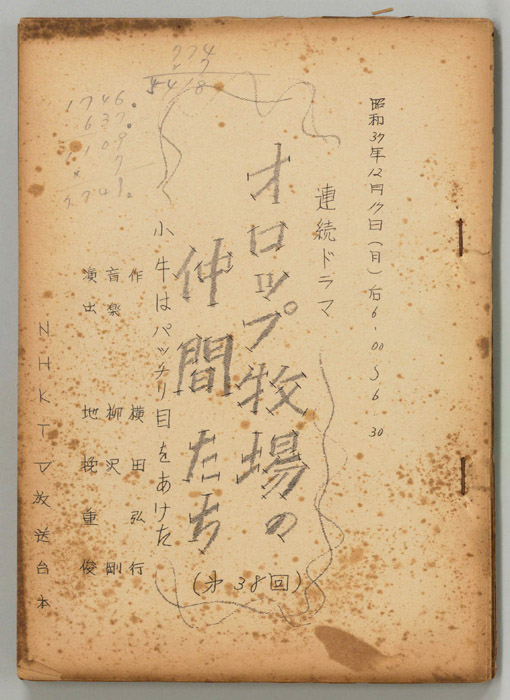 昭和37年12月17日(月)后6.00〜6.30
連続ドラマ
オロップ牧場の
仲間たち
(第38回)
小牛はパッチリ目をあけた
作 横田弘行
音楽 柳沢剛
演出 地挽重俊
NHKTV放送台本
774
5418
1746.
637.
1109
×7